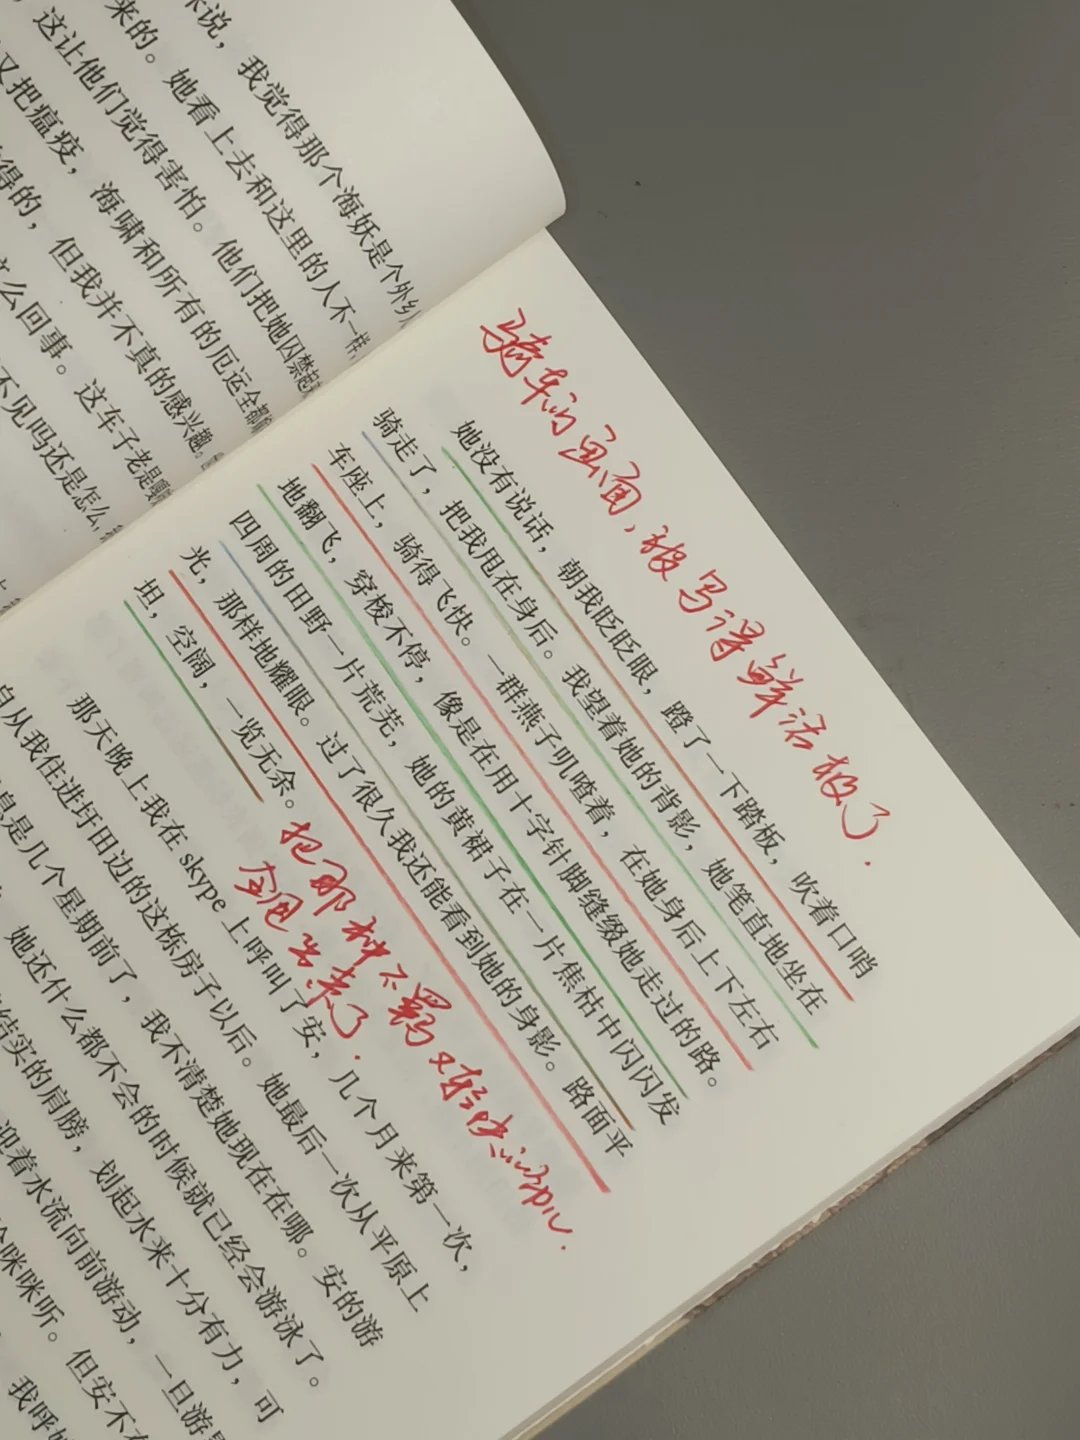 说，我觉得那个海妖是个外乡
来的。她看上去和这里的人不一样，
这让他们觉得害怕。他们把她囚禁起
又把瘟疫，海啸和所有的厄运全都
得的，但我并不真的感兴趣。
么回事。这车子老是
不见吗还是怎么，
骑车的画面，被写得鲜活极了。
她没有说话，朝我眨眨眼，蹬了一下踏板，吹着口哨
骑走了，把我甩在身后。我望着她的背影，她笔直地坐在
车座上，骑得飞快。一群燕子叽喳着，在她身后上下左右
地翻飞，穿梭不停，像是在用十字针脚缝缀她走过的路。
四周的田野一片荒芜，她的黄裙子在一片焦枯中闪闪发
光，那样地耀眼。过了很久我还能看到她的身影。路面平
坦，空阔，一览无余。
把那种不羁又轻快的
全甩出来了.
那天晚上我在 skype 上呼叫了安，几个月来第一次，
自从我住进圩田边的这栋房子以后。她最后一次从平原上
息是几个星期前了，我不清楚她现在在哪。安的游
她还什么都不会的时候就已经会游泳了。
结实的肩膀，划起水来十分有力，可
迎着水流向前游动，一旦游
咪咪听。但安不
我呼